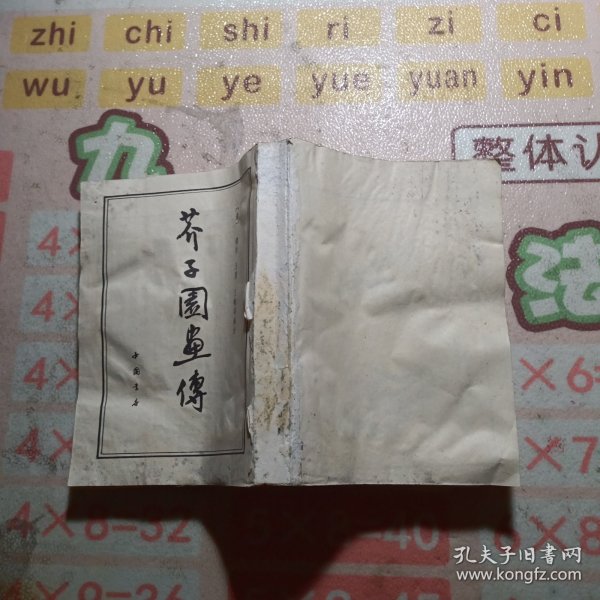 zhi chi shi ri zi ci
wu yu ye yue yuan yin
九
整体认
法
芥子園畫傳
中国書店
4×
4×
×6=
4×
×7
4×8=32
5×8=40
6×8
4×9=36
孔夫子旧書网
www.kongfz.com